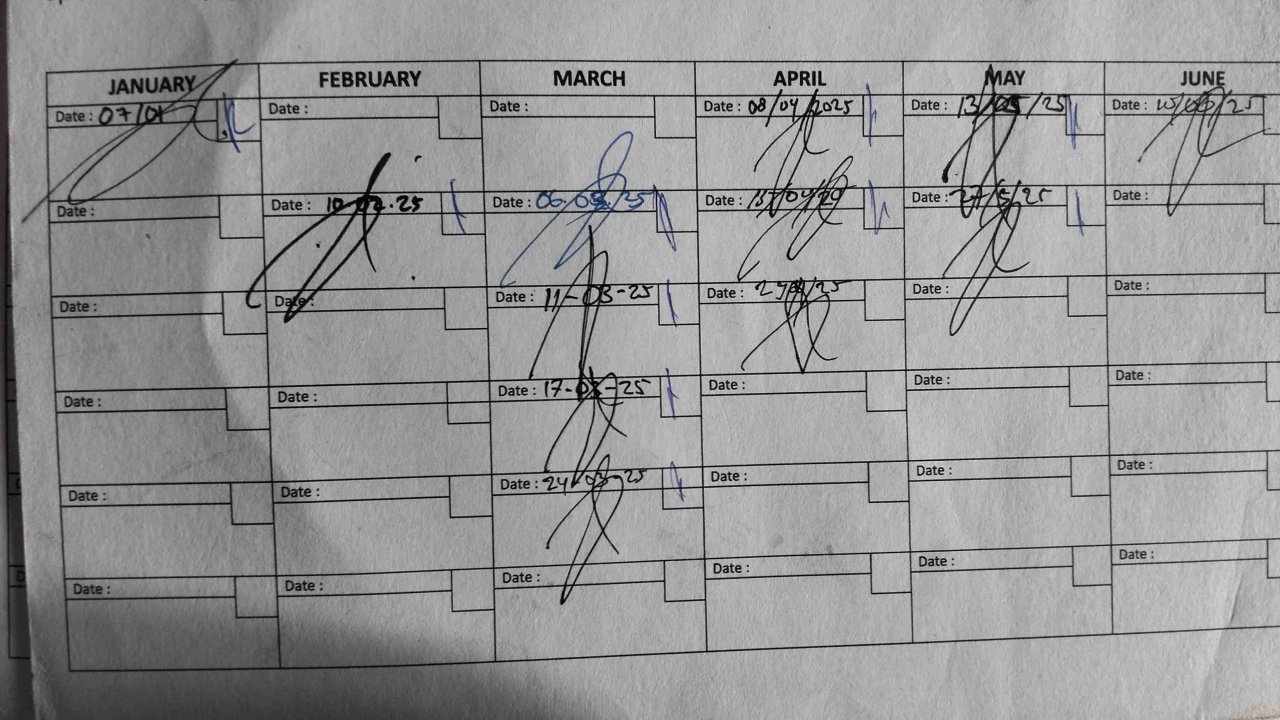 JANUARY FEBRUARY MARCH APRIL MAY JUNE
Date : 07/01 Date : Date : Date : 08/04/2025 Date : 13/05/25 Date :
Date : Date : 10.02.25 Date : 06.03./25 Date : Date : 27/5/25 Date :
Date : Date : Date : 11-03-25 Date : Date : Date :
Date : Date : Date : 17-03-25 Date : Date : Date :
Date : Date : Date : 24-03-25 Date : Date : Date :
Date : Date : Date : Date : Date : Date :